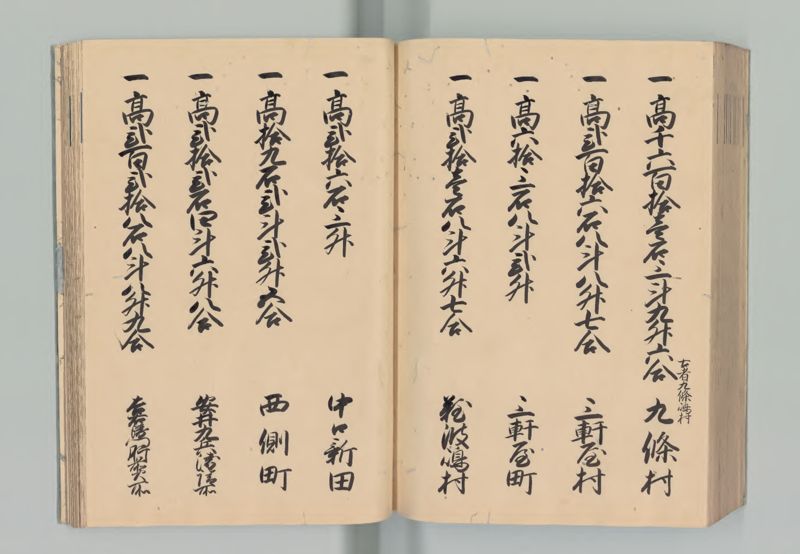 一高千六百拾壱石三斗九升六合 九條村
古者九條嶋村
一高弐百拾六石八斗八升七合 三軒屋村
一高六拾三石八斗弐升 三軒屋町
一高弐拾壱石八斗六升七合 難波嶋村
一高弐拾六石三升 中口新田
一高拾九石弐斗弐升五合 西側町
一高弐拾弐石四斗六升八合
一高弐百弐拾八石八斗八升九合